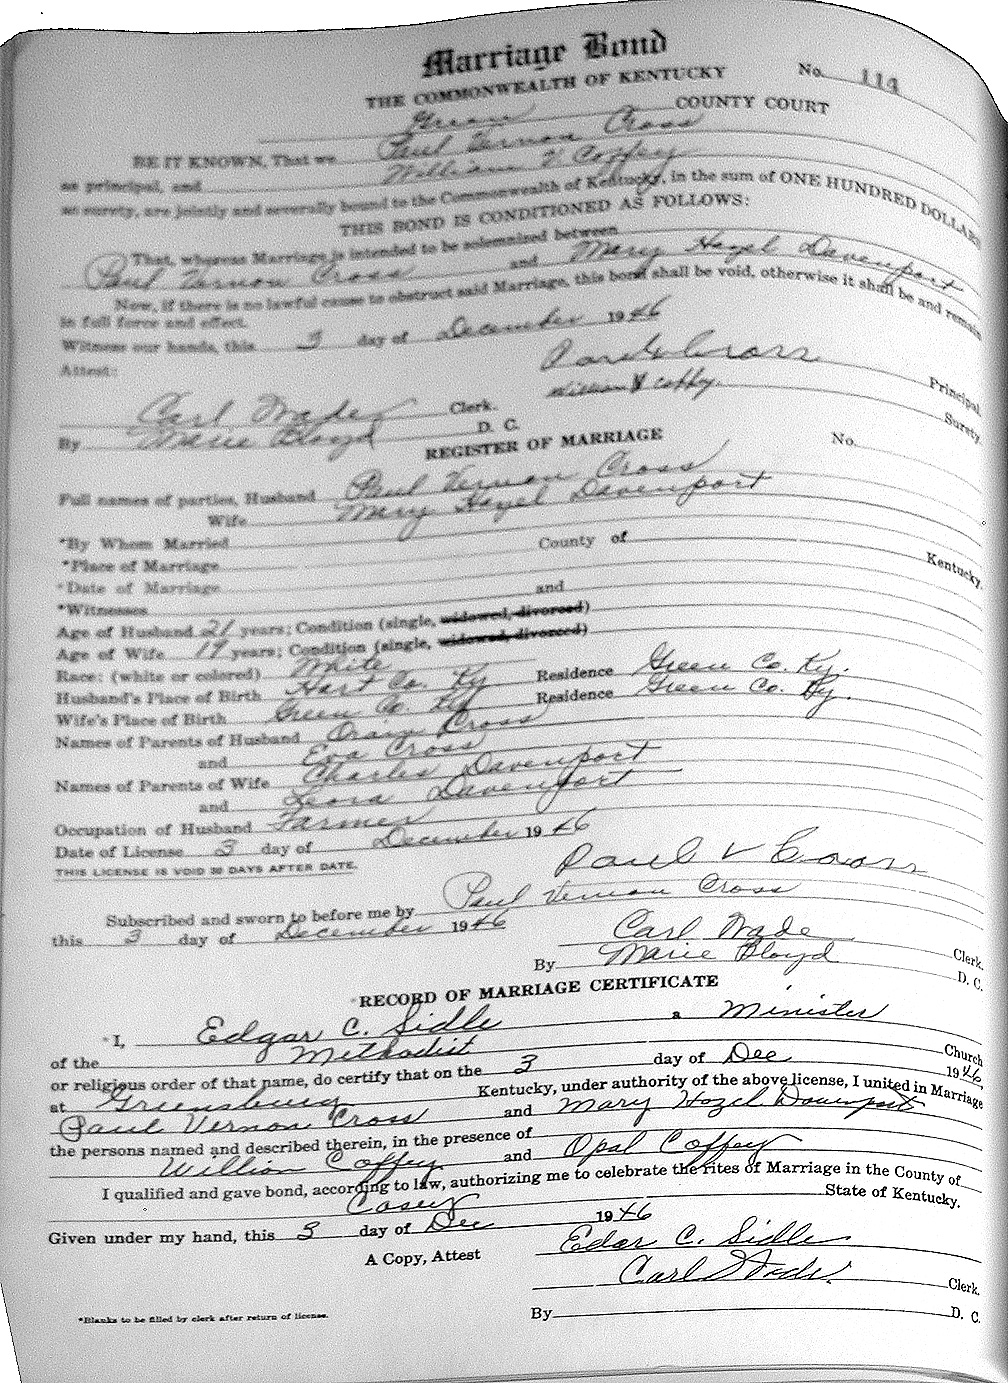 Marriage Bond
No. 114
THE COMMONWEALTH OF KENTUCKY
Green COUNTY COURT
BE IT KNOWN, That we Paul Vernon Cross
as principal, and William V Coffey
as surety, are jointly and severally bound to the Commonwealth of Kentucky, in the sum of ONE HUNDRED DOLLARS
THIS BOND IS CONDITIONED AS FOLLOWS:
That, whereas Marriage is intended to be solemnized between
Paul Vernon Cross and Mary Hazel Davenport
Now, if there is no lawful cause to obstruct said Marriage, this bond shall be void, otherwise it shall be and remain
in full force and effect.
Witness our hands, this 3 day of December 1946
Attest:
Paul V Cross Principal.
William V Coffey. Surety.
Carl Wade Clerk.
By Marie Bloyd D. C.
REGISTER OF MARRIAGE No.
Full names of parties, Husband Paul Vernon Cross
Wife Mary Hazel Davenport
*By Whom Married
*Place of Marriage County of Kentucky.
*Date of Marriage
*Witnesses and
Age of Husband 21 years; Condition (single, widowed, divorced)
Age of Wife years; Condition (single, widowed, divorced)
Race: (white or colored) White
Husband's Place of Birth Hart Co. Ky Residence Green Co. Ky.
Wife's Place of Birth Green Co. Ky Residence Green Co. Ky.
Names of Parents of Husband Cross
and Eva Cross
Names of Parents of Wife Charles Davenport
and Leora Davenport
Occupation of Husband Farmer
Date of License 3 day of December 1946
THIS LICENSE IS VOID 30 DAYS AFTER DATE.
Paul V Cross
Subscribed and sworn to before me by Paul Vernon Cross
this 3 day of December 1946
Carl Wade Clerk.
By Marie Bloyd D. C.
*RECORD OF MARRIAGE CERTIFICATE
*I, Edgar C. Sidle a Minister
of the Methodist Church
or religious order of that name, do certify that on the 3 day of Dec 1946,
at Greensburg Kentucky, under authority of the above license, I united in Marriage
Paul Vernon Cross and Mary Hazel Davenport
the persons named and described therein, in the presence of
William Coffey and Opal Coffey
I qualified and gave bond, according to law, authorizing me to celebrate the rites of Marriage in the County of
Casey State of Kentucky.
Given under my hand, this 3 day of Dec 1946
Edar C. Sidle
A Copy, Attest
Carl Wade Clerk.
By D. C.
*Blanks to be filled by clerk after return of license.